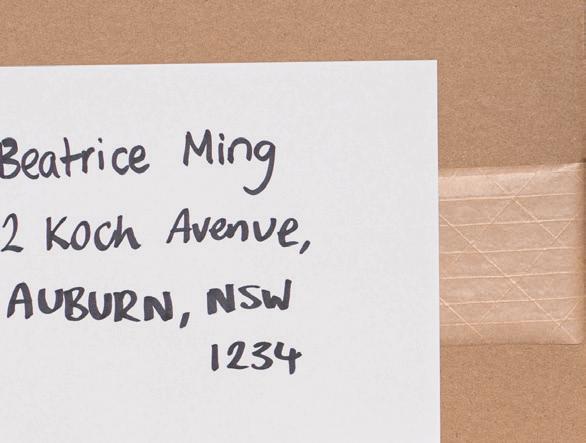 Beatrice Ming
2 Koch Avenue,
AUBURN, NSW
1234